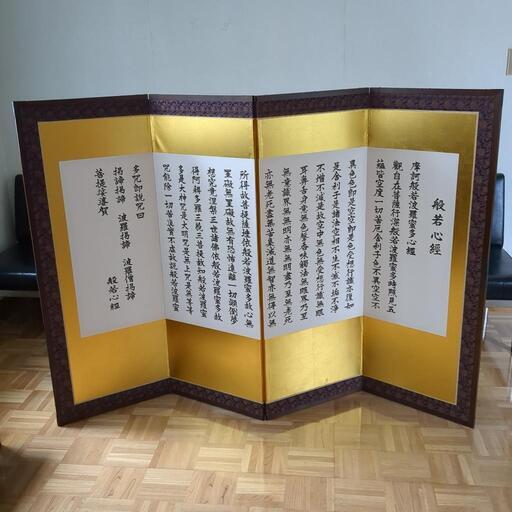 般若心經
摩訶般若波羅蜜多心經
觀自在菩薩行深般若波羅蜜多時照見五
蘊皆空度一切苦厄舍利子色不異空空不
異色色即是空空即是色受想行識亦復如
是舍利子是諸法空相不生不滅不垢不淨
不增不減是故空中無色無受想行識無眼
耳鼻舌身意無色聲香味觸法無眼界乃至
無意識界無無明亦無無明盡乃至無老死
亦無老死盡無苦集滅道無智亦無得以無
所得故菩提薩埵依般若波羅蜜多故心無
罣礙無罣礙故無有恐怖遠離一切顛倒夢
想究竟涅槃三世諸佛依般若波羅蜜多故
得阿耨多羅三藐三菩提故知般若波羅蜜
多是大神咒是大明咒是無上咒是無等等
咒能除一切苦真實不虛故說般若波羅蜜
多咒即說咒曰
揭諦揭諦 波羅揭諦 波羅僧揭諦
菩提娑婆賀 般若心經